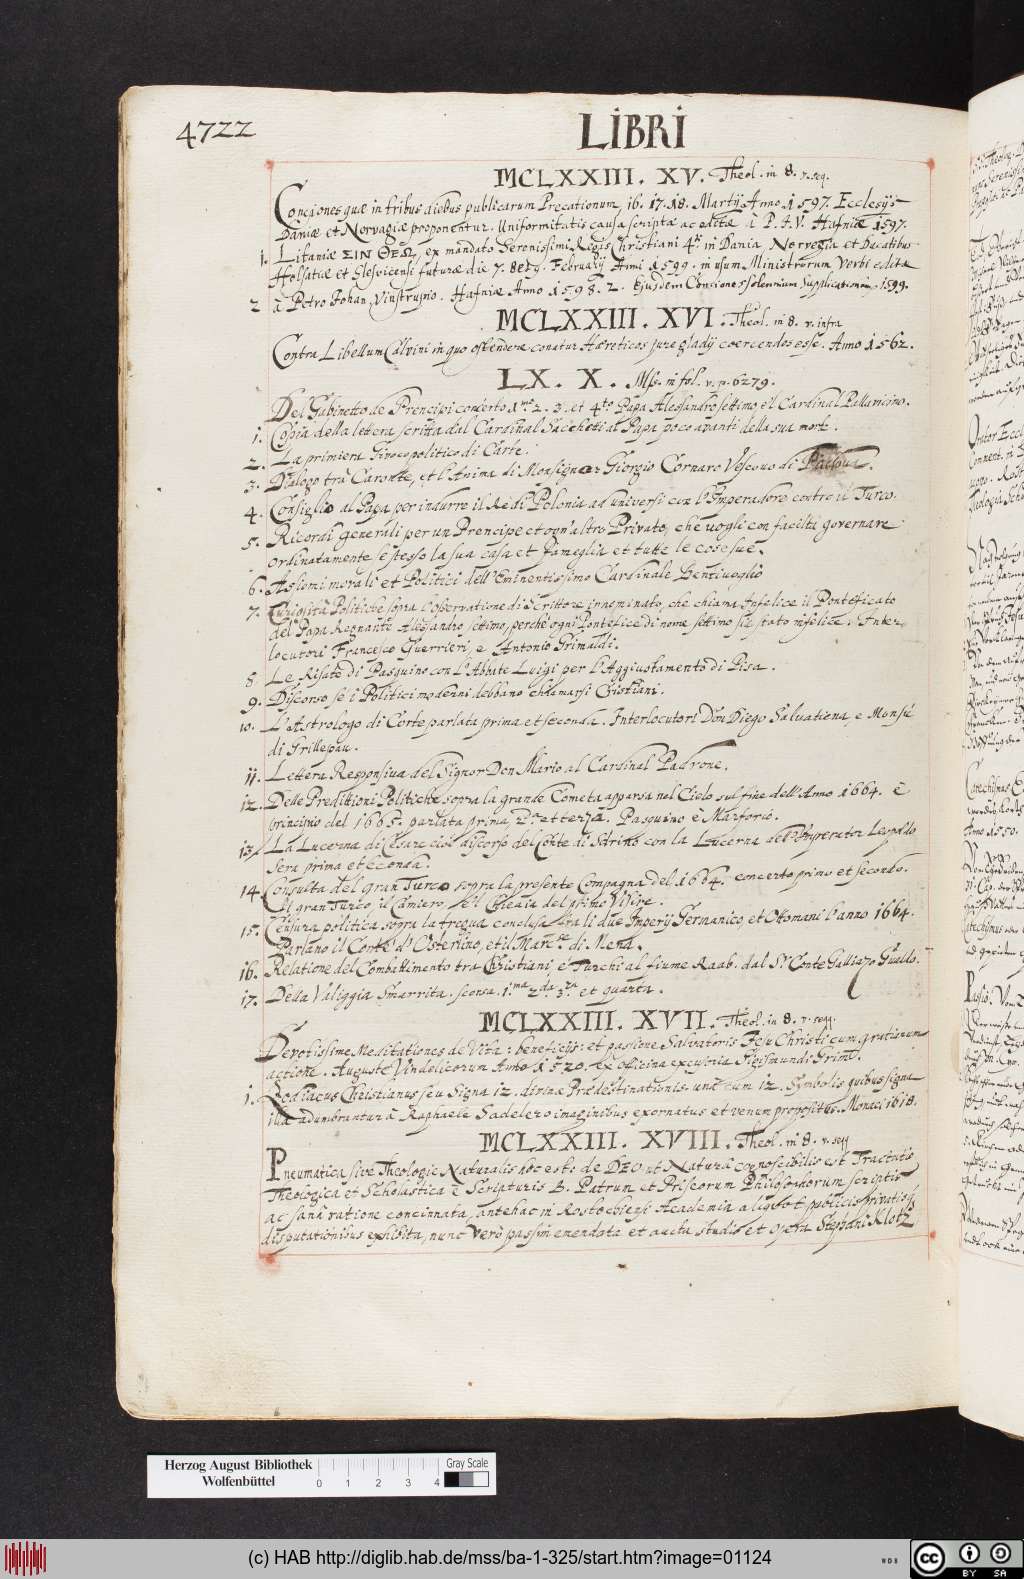 4722
LIBRI
MCLXXIII. XV. Theol. in 8. v. seq.
Conciones quæ in tribus diebus publicarum Precationum, 16. 17. 18. Martij Anno 1597. Ecclesijs
Daniæ et Norvagiæ proponentur. Uniformitatis causa scriptæ ac editæ à P. I. V. Hafniæ 1597.
1. Litaniæ ΣΙΝ ΘΕΩ, ex mandato Serenissimi Regis Christiani 4ti in Dania Norvegia et Ducatibus
Holsatiæ et Slesvicensi futuræ die 7. 8 et 9. February Anni 1599. in usum Ministrorum Verbi editæ
2 à Petro Johan. Vinstrupio. Hafniæ Anno 1598. 2. Ejusdem Conciones solennium supplicationum 1599.
MCLXXIII. XVI. Theol. in 8. v. infra
Contra Libellum Calvini in quo ostendere conatur Hæreticos jure gladij coercendos esse. Anno 1562.
LX. X. Mss. in fol. v. p. 6279.
Del Gabinetto de Prencipi concerto 1mo 2. 3. et 4to Papa Alessandro settimo e'l Cardinal Pallavicino.
1. Copia della lettera scritta dal Cardinal Sacchetti al Papa poco avanti della sua morte.
2. La primiera Giroco politico di Carte.
3. Dialogo trà Caronte, et l'Anima di Monsignor Giorgio Cornaro Vescovo di Padova.
4. Consiglio al Papa per indurre il Re di Polonia ad universi con l'Imperadore contro il Turco.
5. Ricordi generali per un Prencipe et ogn'altro Privato, che vogli con facilta governare
ordinatamente se stesso la sua casa et fameglia et tutte le cose sue.
6. Assiomi morali et Politici dell'Eminentissimo Cardinale Bentivoglio
7. Curiosità Politiche sopra l'observatione di Scrittore innominato, che chiama Infelice il Pontificato
del Papa Regnante Alessandro settimo, perche ogni Pontefice di nome settimo sia stato infelice. Inter-
locutori Francesco Guerrieri, e Antonio Grimaldi.
8 Le Risate di Pasquino con l'Abbate Luigi per l'Aggiustamento di Pisa.
9. Discorso se i Politici moderni debbano chiamarsi Cristiani.
10. L'Astrologo di Corte parlata prima et seconda. Interlocutori Don Diego Salvatiena, e Monsù
di Grillepau.
11. Lettera Responsiva del Signor Don Mario al Cardinal Padrone.
12. Delle Predittioni Politiche sopra la grande Cometa apparsa nel Cielo sul fine dell'Anno 1664. è
principio del 1665. parlata prima, 2da et terza. Pasquino è Marforio.
13. La Lucerna di Cesare cioè discorso del Conte di Sdrino con la Lucerna dell'Imperator Leopoldo
sera prima et seconda.
14. Consulta del gran Turco sopra la presente Compagna del 1664. concerto primo et secondo.
Il gran Turco, il Camiero, e'l Checaia del primo Visire.
15. Censura politica sopra la tregua conclusa tra li due Imperij Germanico, et Ottomani l'anno 1664.
Parlano il Conte d'Osterlino, et il Marc.se di Nena.
16. Relatione del Combattimento tra Christiani, e Turchi al fiume Raab. dal Sr. Conte Galliazo Gualdo.
17. Della Valiggia Smarrita. scorsa. 1.ma 2.da 3.za et quarta.
MCLXXIII. XVII. Theol. in 8. v. seqq.
Devotissime Meditationes de Vita: beneficijs: et passione Salvatoris Jesu Christi cum gratiarum
actione. Auguste Vindelicorum Anno 1520. ex officina excusoria Sigismundi Grim.
1. Zodiacus Christianus seu Signa 12. divinæ Prædestinationis. unà cum 12. Symbolis quibus signa
illa adumbrantur à Raphaele Sadelero imaginibus exornatus et venum propositus. Monaci 1618.
MCLXXIII. XVIII. Theol. in 8. v. seqq
Pneumatica sive Theologia Naturalis hoc est: de DEO ut Naturâ cognoscibilis est Tractatio
Theologica et Scholastica è Scripturis B. Patrum et Priscorum Philosophorum scriptis
ac sanâ ratione concinnata, antehac in Rostochiensi Academia aliquot publicis privatisq
disputationibus exhibita, nunc verò passim emendata et aucta studio et opera Stephani Klotz
Herzog August Bibliothek
Wolfenbüttel
0 1 2 3 4
Gray Scale
(c) HAB http://diglib.hab.de/mss/ba-1-325/start.htm?image=01124
WDB
cc
BY SA